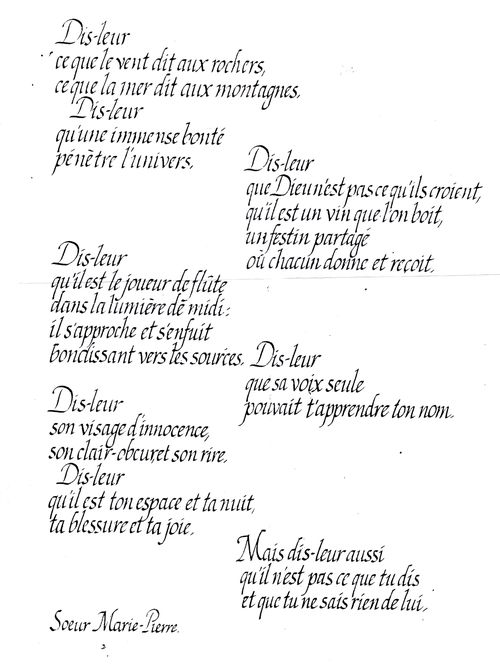 Dis-leur
ce que le vent dit aux rochers,
ce que la mer dit aux montagnes.
Dis-leur
qu'une immense bonté
pénètre l'univers.
Dis-leur
que Dieu n'est pas ce qu'ils croient,
qu'il est un vin que l'on boit,
un festin partagé
où chacun donne et reçoit.
Dis-leur
qu'il est le joueur de flûte
dans la lumière de midi :
il s'approche et s'enfuit
bondissant vers les sources.
Dis-leur
que sa voix seule
pouvait t'apprendre ton nom.
Dis-leur
son visage d'innocence,
son clair-obscur et son rire.
Dis-leur
qu'il est ton espace et ta nuit,
ta blessure et ta joie.
Mais dis-leur aussi
qu'il n'est pas ce que tu dis
et que tu ne sais rien de lui.
Soeur Marie-Pierre.